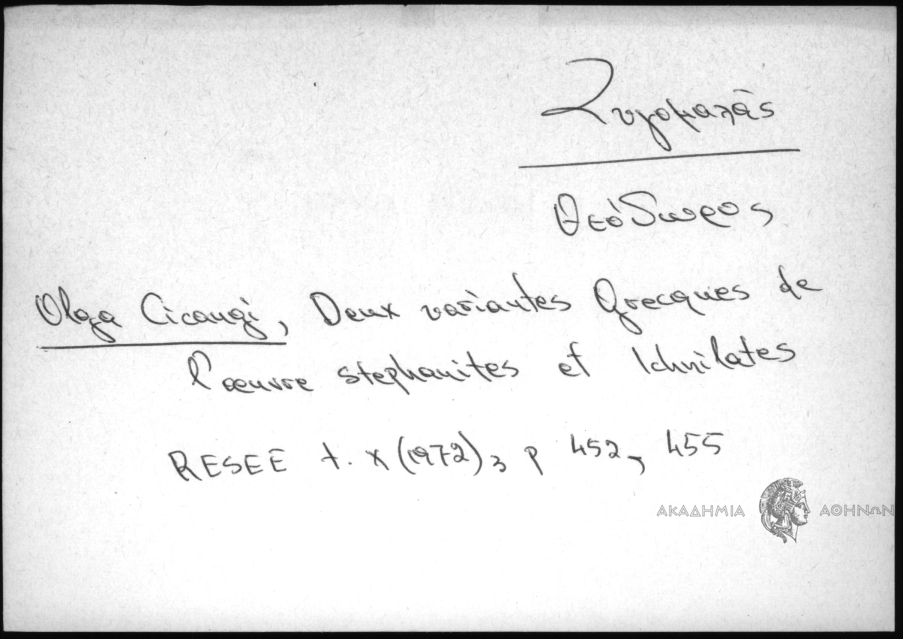 Ζυγομαλάς
Θεόδωρος
Olga Cicangi, Deux variantes Grecques de
l'œuvre stephanites et Ichnilates
RESEE t. X (1972), p 452, 455
ΑΚΑΔΗΜΙΑ ΑΘΗΝΩΝ